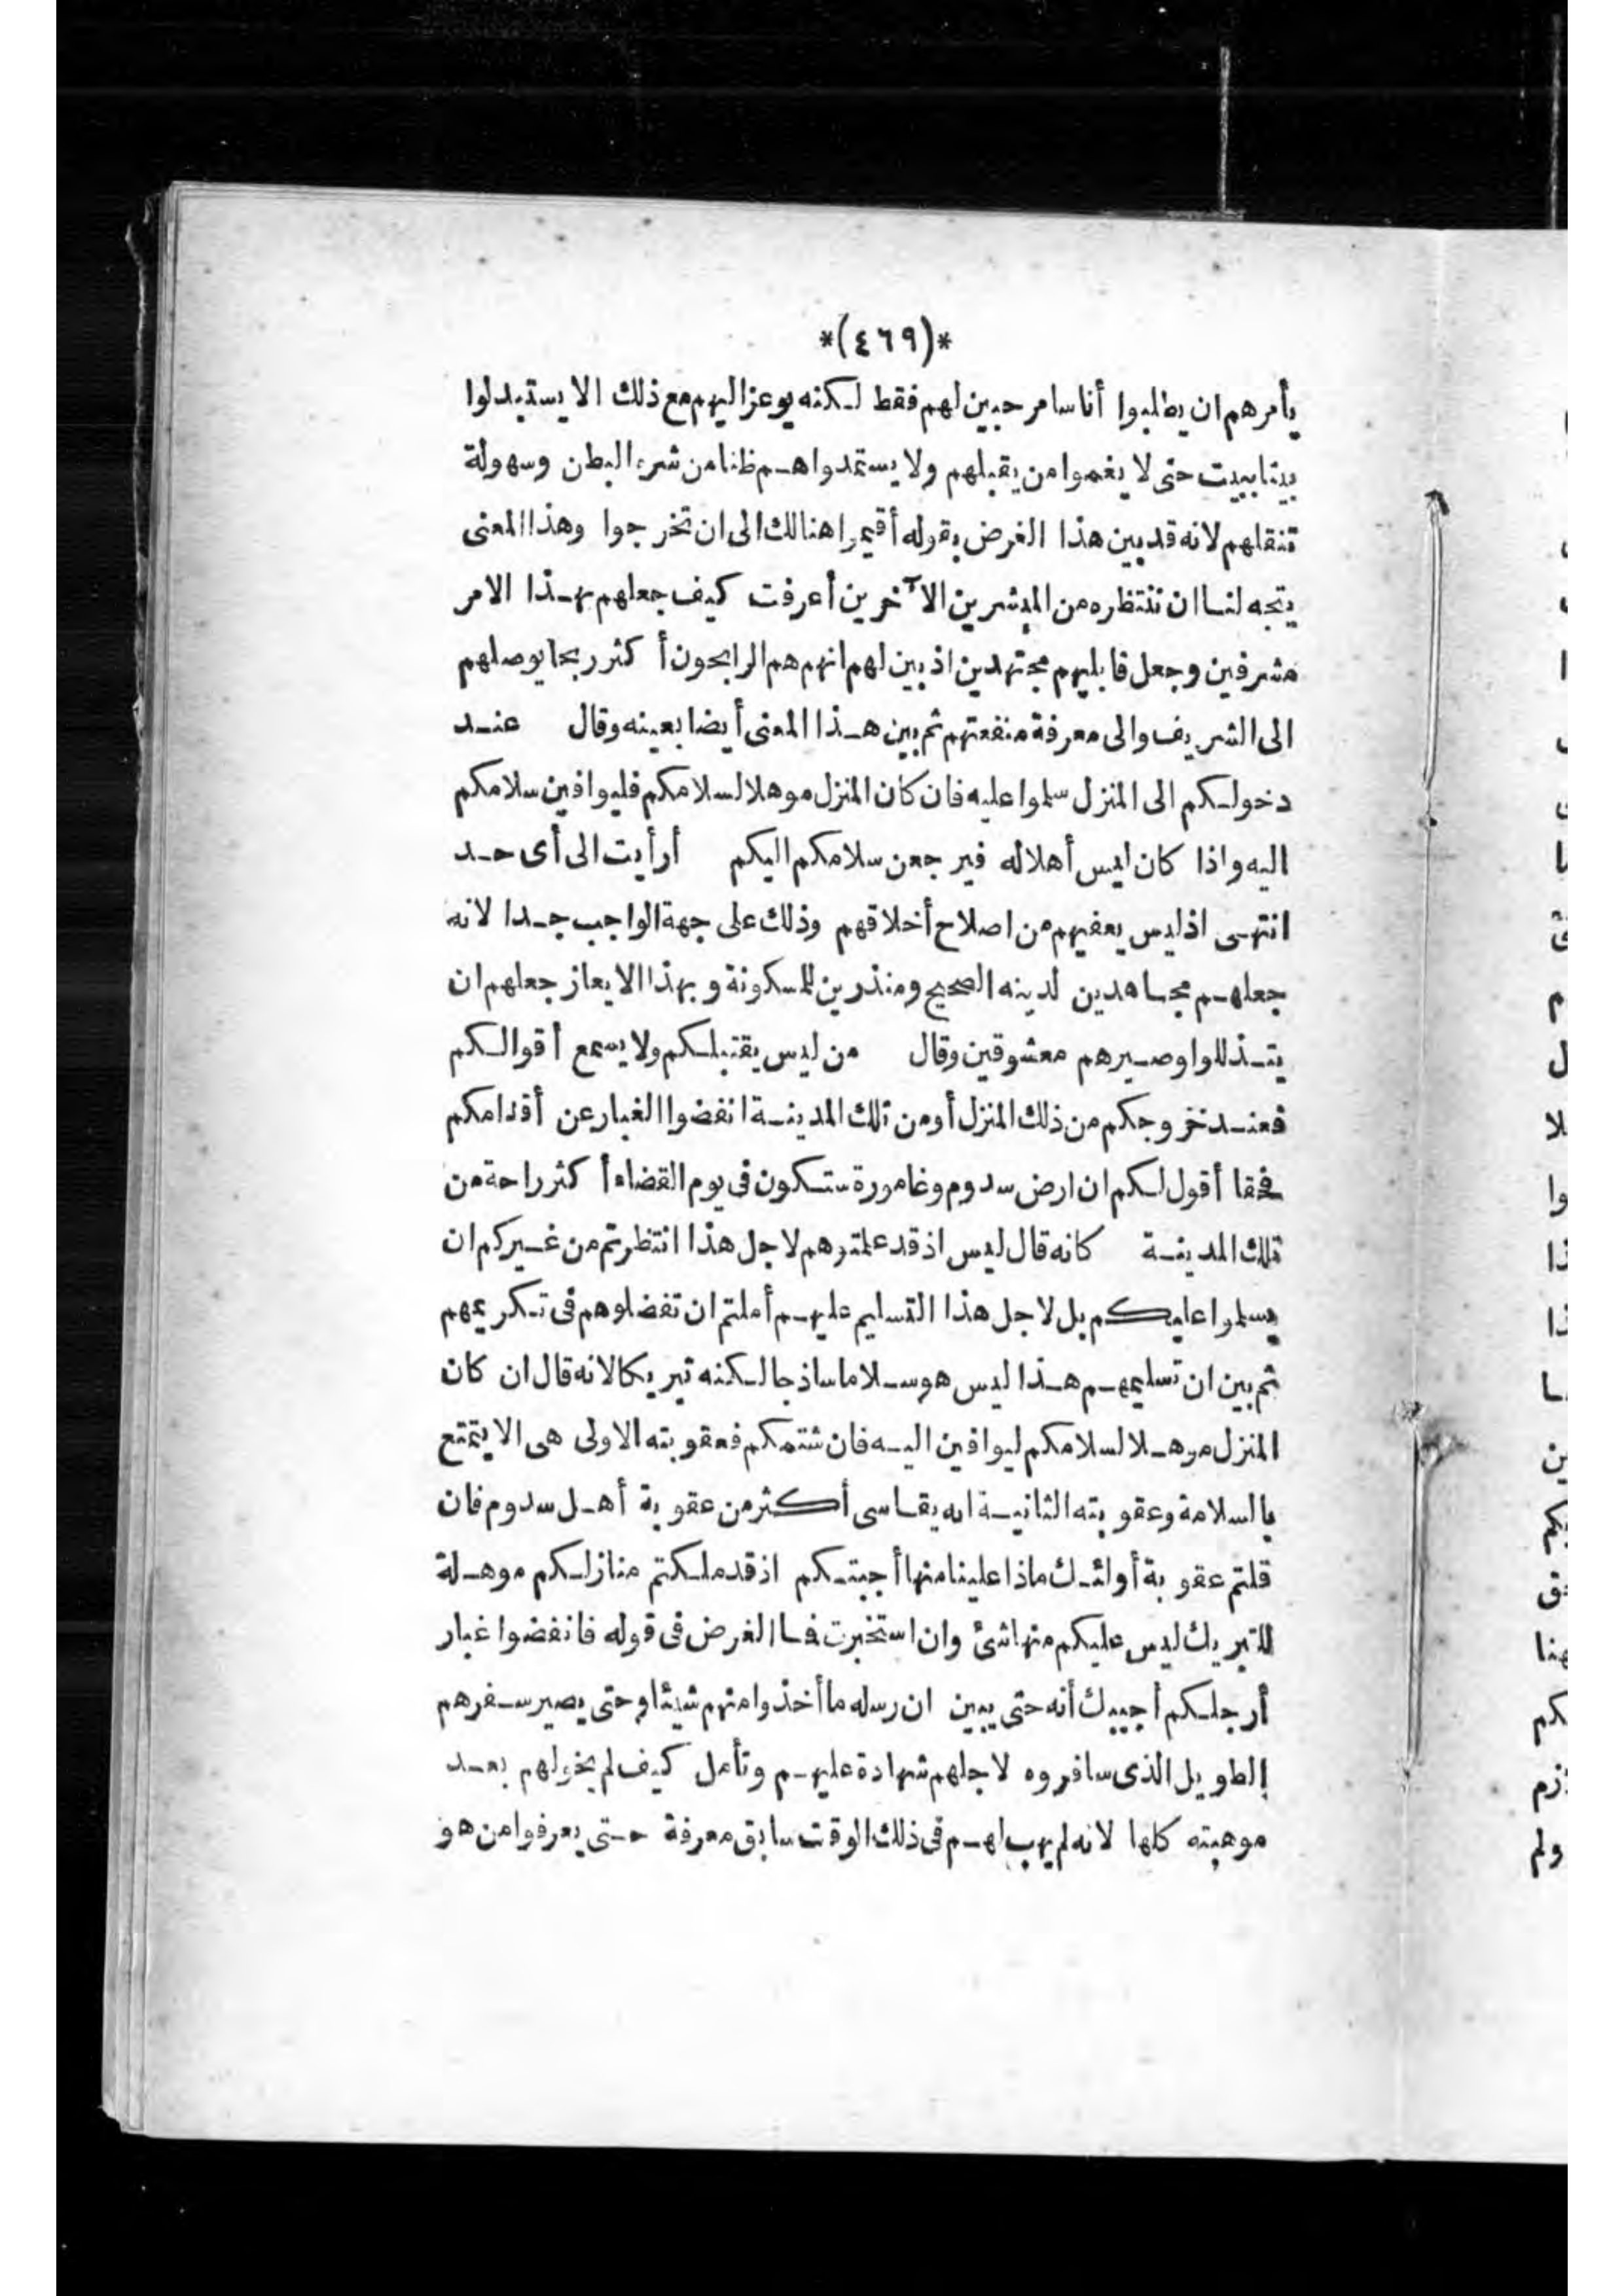 *(٤٦٩)*
يأمرهم ان يطلبوا أناسا مرحبين لهم فقط لكنه يوعز اليهم مع ذلك الا يستبدلوا
بيتا ببيت حتى لا يغموا من يقبلهم ولا يستمدوا هم ظنا من شره البطن وسهولة
تنقلهم لانه قد بين هذا الغرض بقوله أقيموا هنالك الى ان تخرجوا وهذا المعنى
يتجه لنا ان ننتظره من المبشرين الآخرين أعرفت كيف جعلهم بهذا الامر
مشرفين وجعل قابليهم مجتهدين اذ بين لهم انهم هم الرابحون أكثر ربحا يوصلهم
الى الشريف والى معرفة منفعتهم ثم بين هذا المعنى أيضا بعينه وقال عند
دخولكم الى المنزل سلموا عليه فان كان المنزل موهلا لسلامكم فليوافين سلامكم
اليه واذا كان ليس أهلا له فيرجعن سلامكم اليكم أرأيت الى أى حد
انتهى اذ ليس يعفيهم من اصلاح أخلاقهم وذلك على جهة الواجب جدا لانه
جعلهم مجاهدين لدينه الصحيح ومنذرين للمسكونة وبهذا الايعاز جعلهم ان
يتذللوا وصيرهم معشوقين وقال من ليس يقتبلكم ولا يسمع أقوالكم
فعند خروجكم من ذلك المنزل أو من تلك المدينة انفضوا الغبار عن أقدامكم
فحقا أقول لكم ان ارض سدوم وغامورة ستكون فى يوم القضاء أكثر راحة من
تلك المدينة كانه قال ليس اذ قد علمتوهم لاجل هذا انتظرتم من غيركم ان
يسلموا عليكم بل لاجل هذا التسليم عليهم أملتم ان تفضلوهم فى تكريمهم
ثم بين ان تسليمهم هذا ليس هو سلاما ساذجا لكنه تبريكا لانه قال ان كان
المنزل موهلا لسلامكم ليوافين اليه فان شتمكم فعقوبته الاولى هى الا يتمتع
بالسلامة وعقوبته الثانية انه يقاسى أكثر من عقوبة أهل سدوم فان
قلتم عقوبة أولئك ماذا علينا منها أجبتكم اذ قد ملكتم منازلكم موهلة
للتبريك ليس عليكم منها شئ وان استخبرت فما الغرض فى قوله فانفضوا غبار
أرجلكم أجيبك أنه حتى يبين ان رسله ما أخذوا منهم شيئا وحتى يصير سفرهم
الطويل الذى سافروه لاجلهم شهادة عليهم وتأمل كيف لم يخولهم بعد
موهبته كلها لانه لم يهب لهم فى ذلك الوقت سابق معرفة حتى يعرفوا من هو